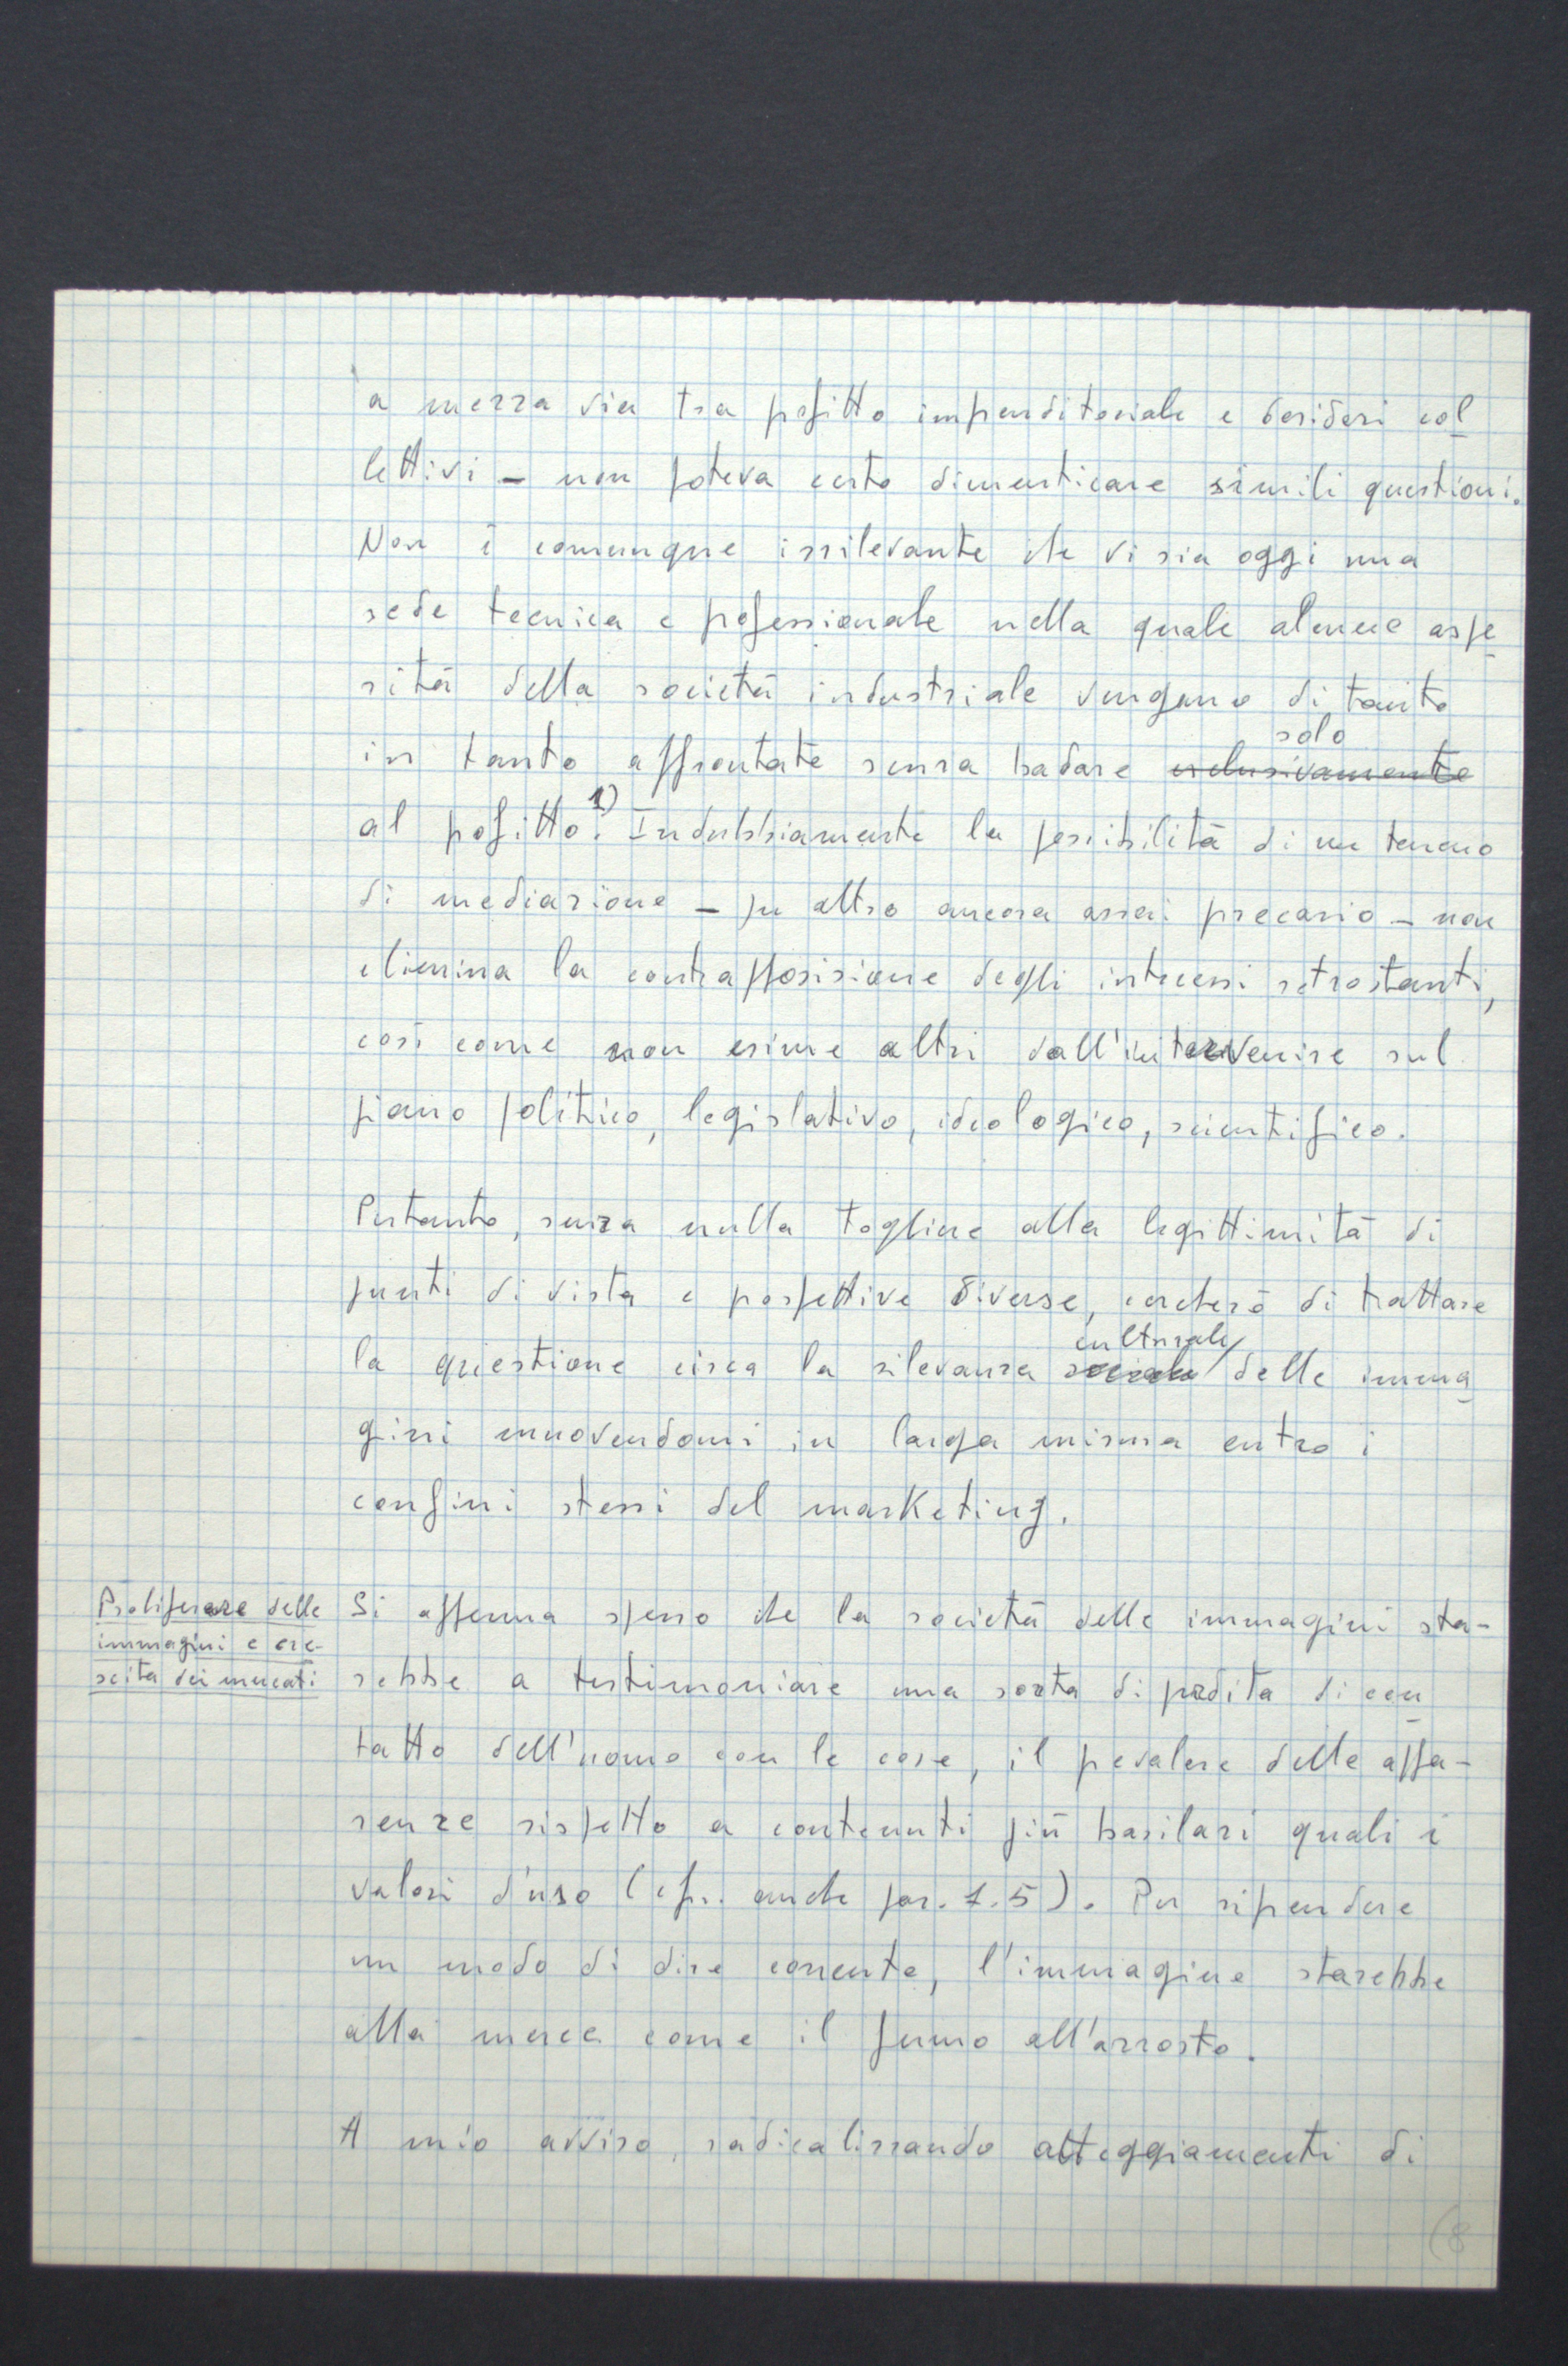 a mezza via tra profitto imprenditoriale e desideri col
lettivi – non poteva certo dimenticare simili questioni.
Non è comunque irrilevante che vi sia oggi una
sede tecnica e professionale nella quale alcune aspe
rità della società industriale vengano di tanto
solo
in tanto affrontate senza badare esclusivamente
al profitto.1) Indubbiamente la possibilità di un terreno
di mediazione – per altro ancora assai precario – non
elimina la contrapposizione degli interessi retrostanti,
così come non esime altri dall'intervenire sul
piano politico, legislativo, ideologico, scientifico.
Pertanto, senza nulla togliere alla legittimità di
punti di vista e prospettive diverse, cercherò di trattare
culturale
la questione circa la rilevanza sociale delle imma
gini muovendomi in larga misura entro i
confini stessi del marketing.
Proliferare delle
immagini e cre-
scita dei mercati
Si afferma spesso che la società delle immagini sta-
rebbe a testimoniare una sorta di perdita di con
tatto dell'uomo con le cose, il prevalere delle appa-
renze rispetto a contenuti più basilari quali i
valori d'uso (cfr. anche par. 1.5). Per riprendere
un modo di dire corrente, l'immagine starebbe
alla merce come il fumo all'arrosto.
A mio avviso, radicalizzando atteggiamenti di
(8